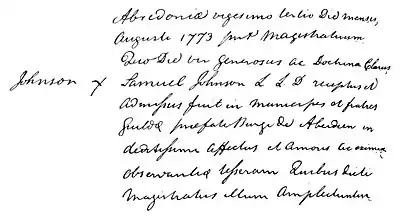 Abredoniæ vigesimo tertio Die mensis
Augusti 1773 pnt Magistratuum
Quo Die vir generosus ac Doctrina Clarus
Johnson x Samuel Johnson L L D receptus et
admissus fuit in municipes et fratres
Guildæ præfate Burgi de Aberdeen in
deditissimi affectus et Amoris ac eximiæ
observantiæ tesseram Quibus dicti
Magistratus illum Amplectuntur